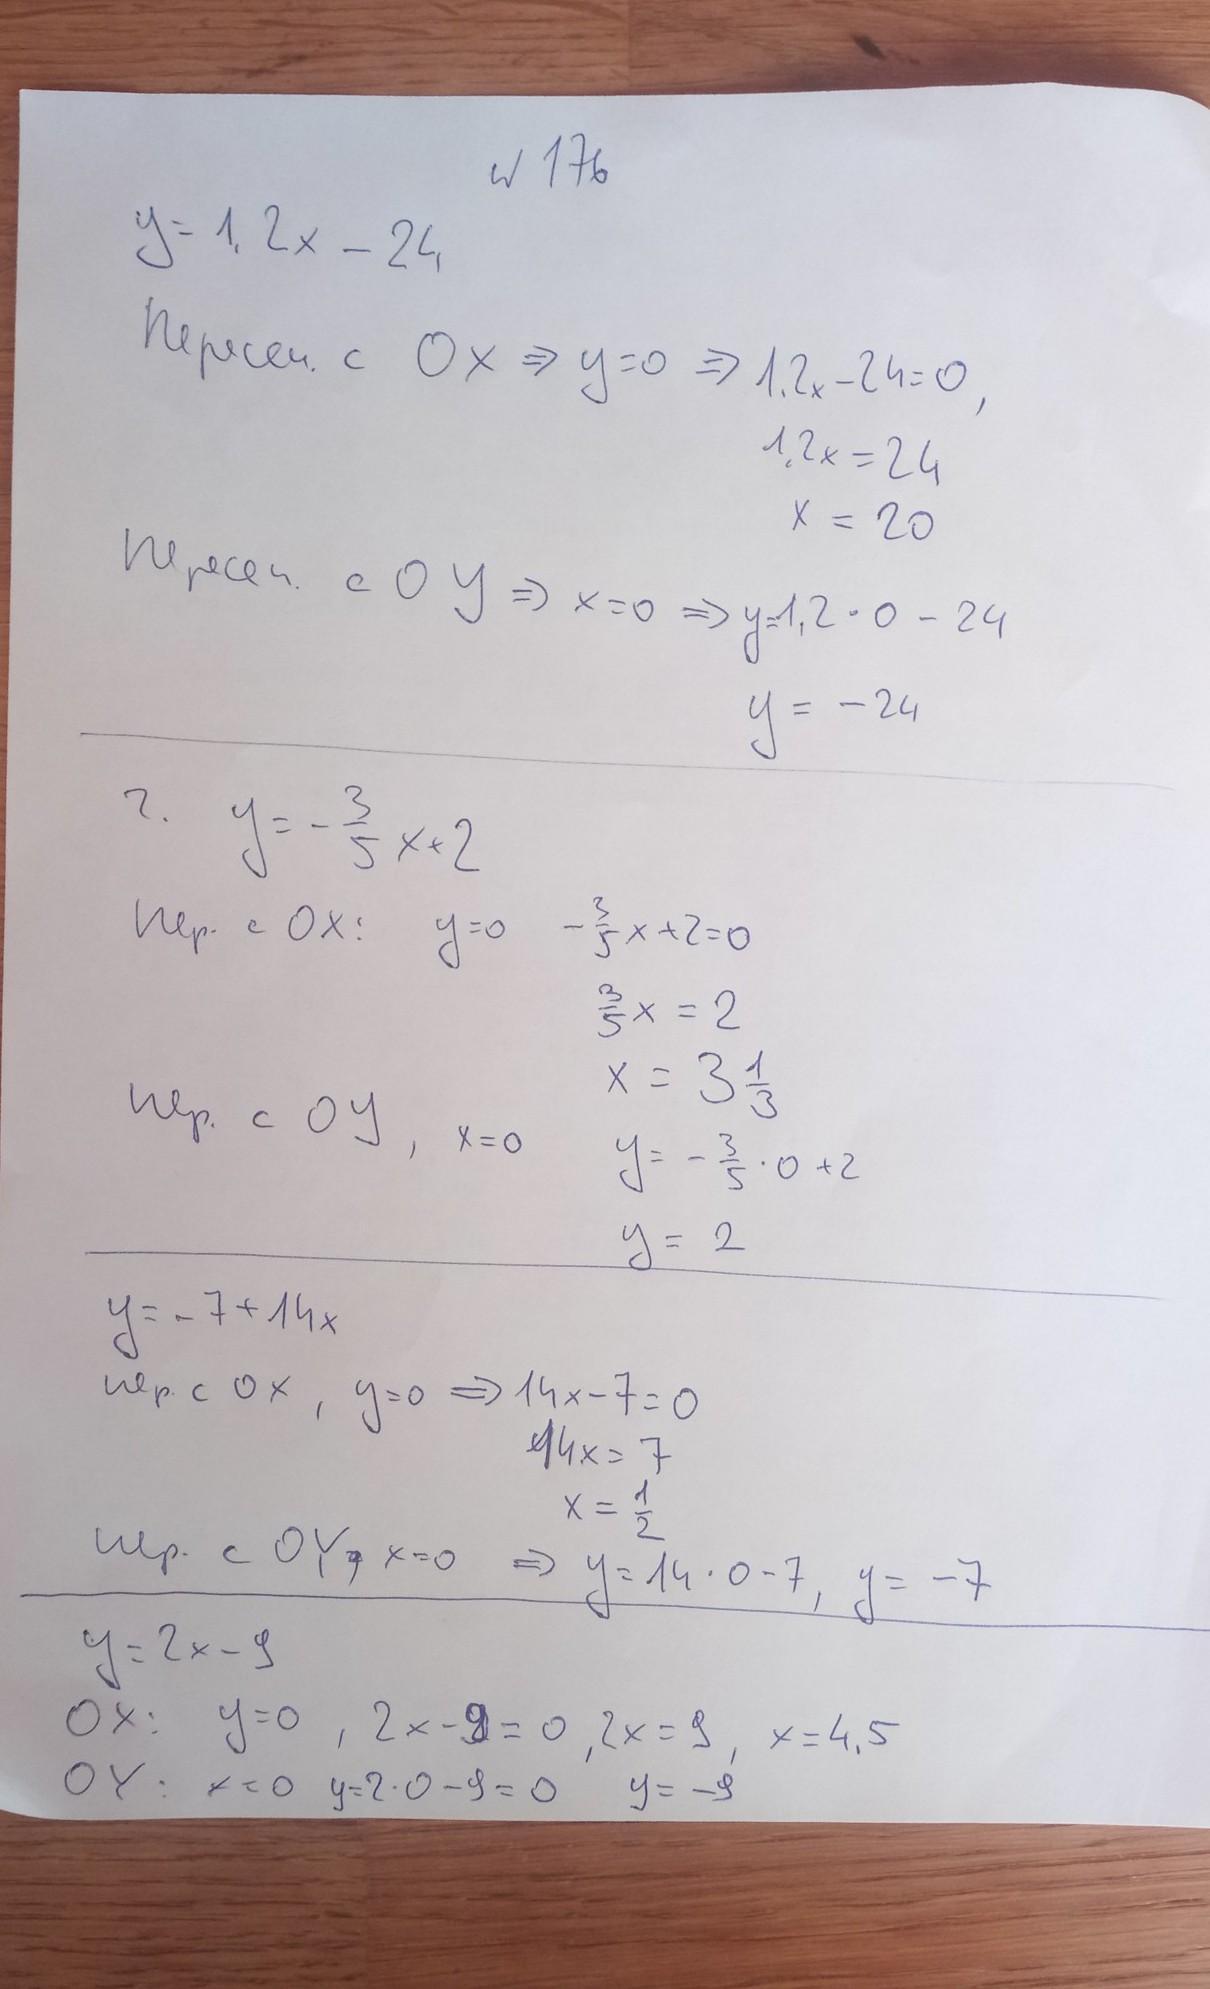 № 176
y = 1,2x - 24
Пересеч. с OX ⇒ y=0 ⇒ 1,2x - 24 = 0,
1,2x = 24
x = 20
Пересеч. с OY ⇒ x=0 ⇒ y=1,2·0 - 24
y = -24
2. y = -3/5 x + 2
Пер. с OX: y=0 -3/5 x + 2 = 0
3/5 x = 2
x = 3 1/3
Пер. с OY, x=0 y = -3/5 · 0 + 2
y = 2
y = -7 + 14x
пер. с OX, y=0 ⇒ 14x - 7 = 0
14x = 7
x = 1/2
пер. с OY, x=0 ⇒ y = 14·0 - 7, y = -7
y = 2x - 9
OX: y=0, 2x - 9 = 0, 2x = 9, x = 4,5
OY: x=0 y=2·0 - 9 = 0 y = -9